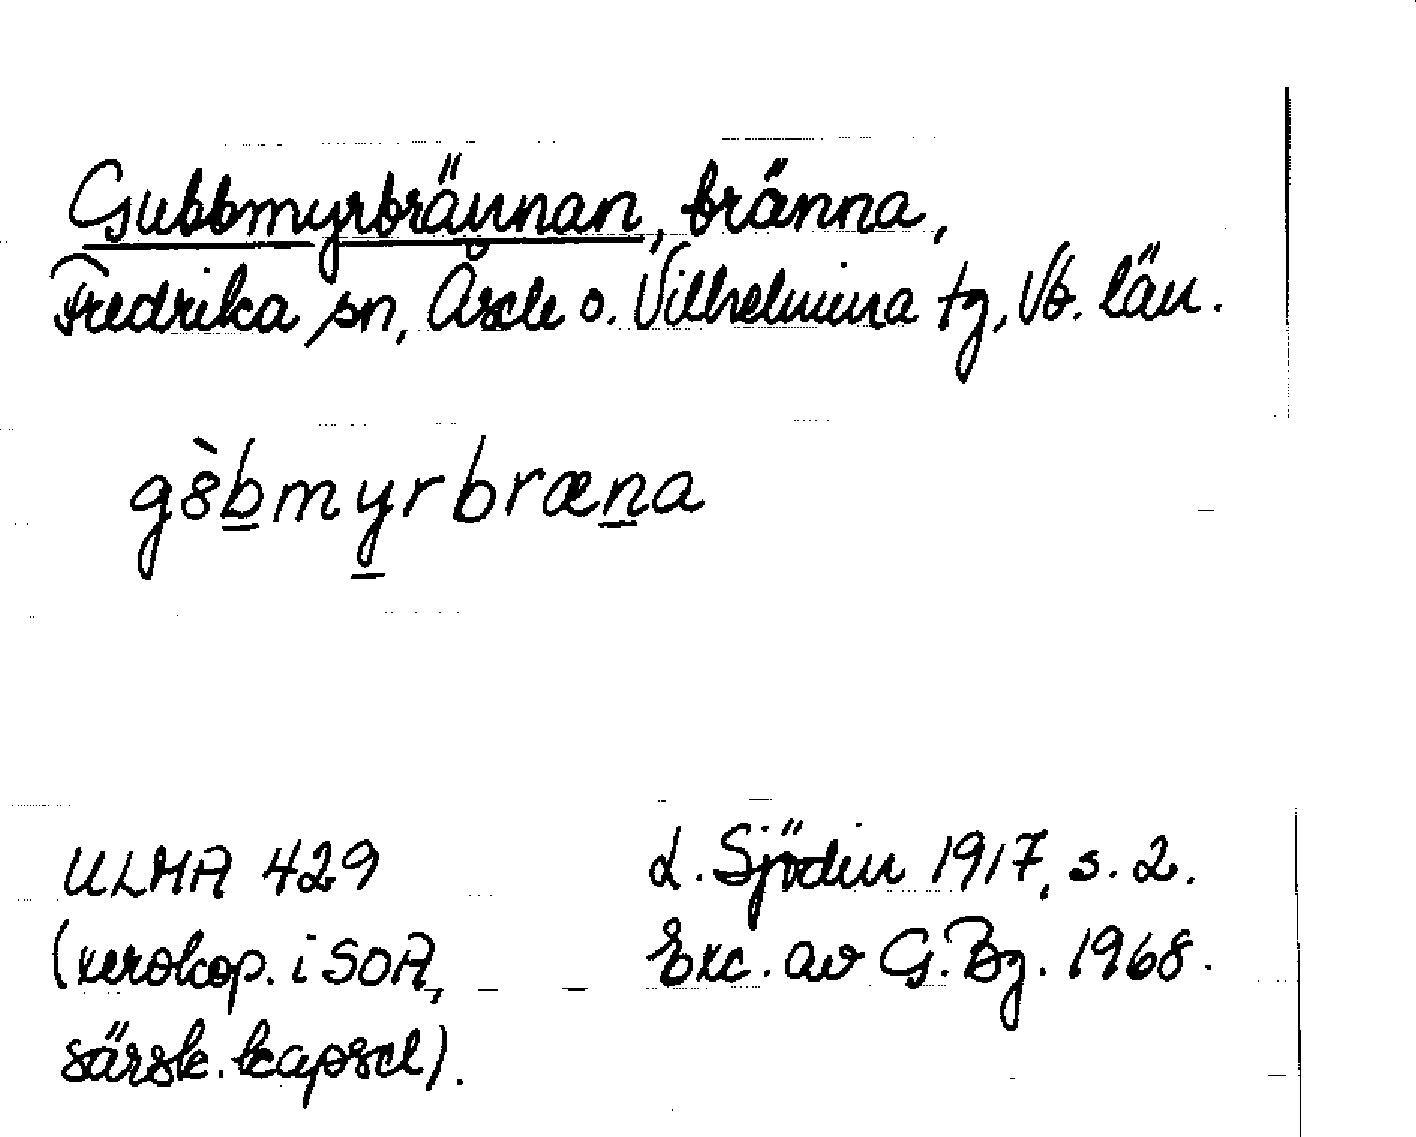 Gubbmyrbrännan, bränna,
Fredrika sn, Åsele o. Vilhelmina tg, Vb. län.
gȣ̀b̲my̲rbræn̲a
ULMA 429
L. Sjödin 1917, s. 2.
(xerokop. i SOA,
Exc. av G. Bg. 1968.
särsk. kapsel).